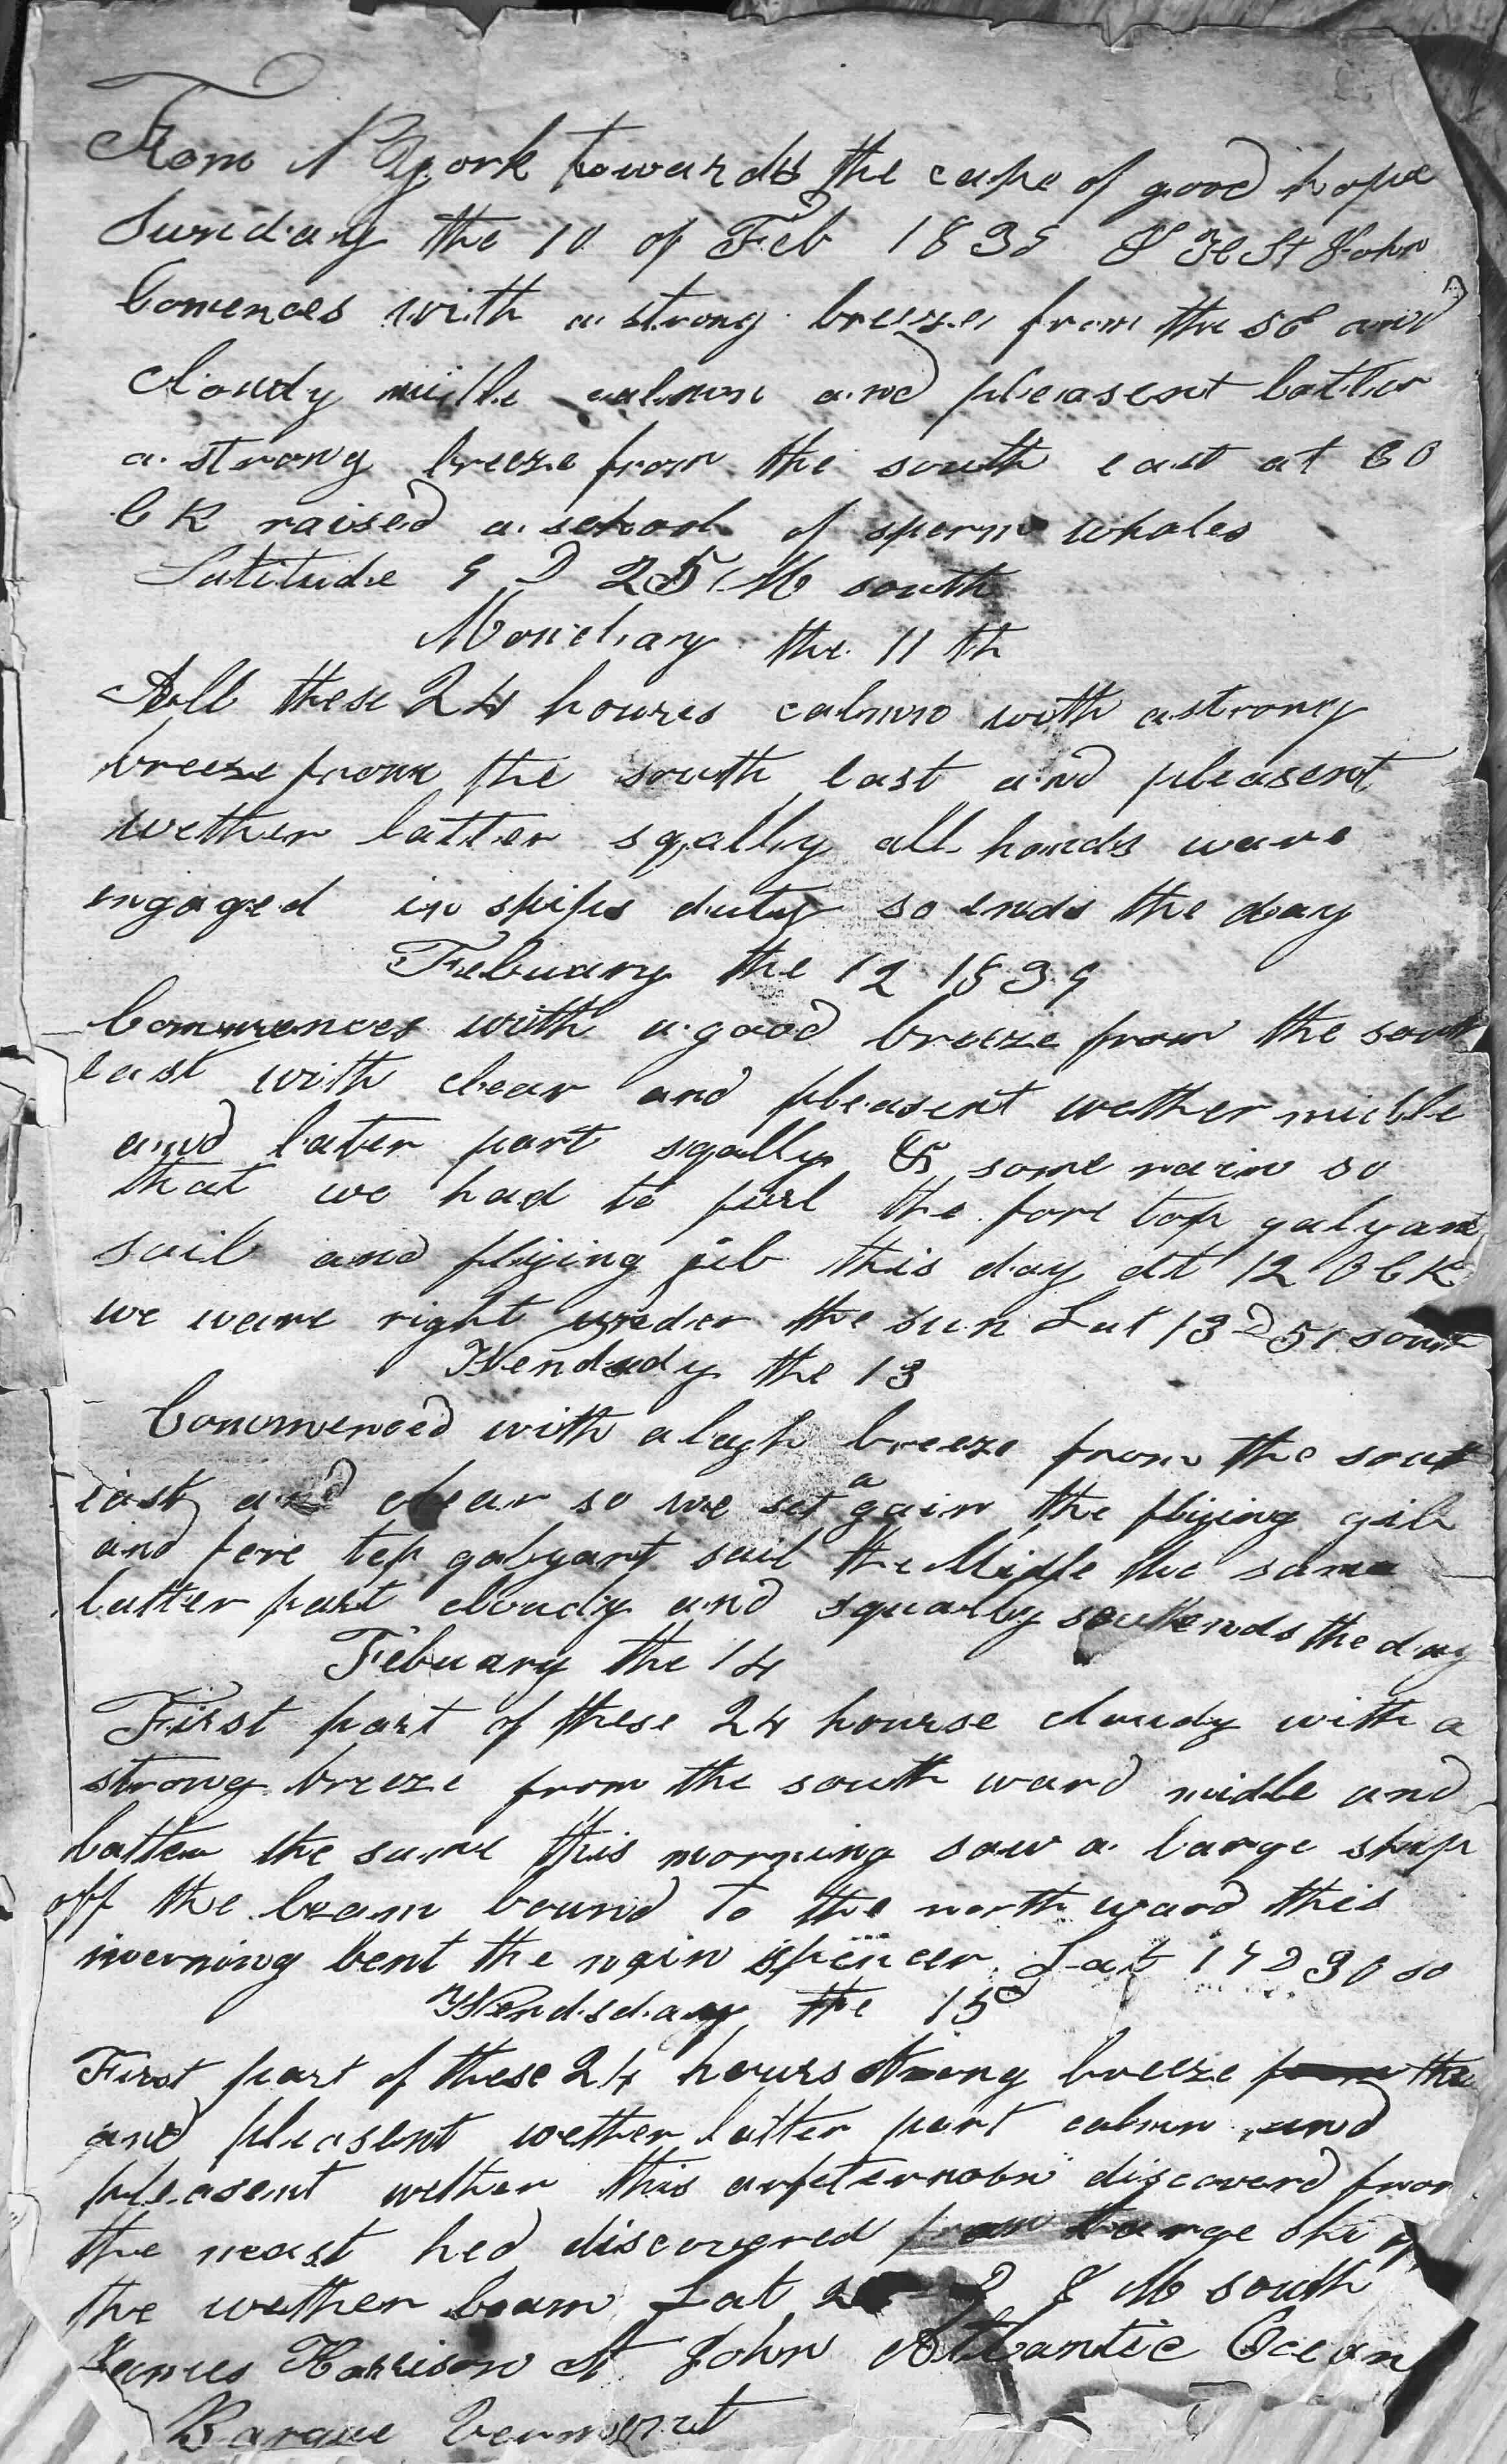 From N York towards the cape of good hope
Sunday the 10 of Feb 1839 J H St John
Comences with a strong breeze from the SE and
Cloudy midle calmn and pleasent latter
a strong breeze from the south east at 6 O
C K raised a school of sperm whales
Latitude 9 D 25 M south
Monday the 11 th
All these 24 houres calmn with a strong
breeze from the south east and pleasent
wether latter sqally all hands ware
engaged in ships duty so ends the day
Febuary the 12 1839
Commences with a good breeze from the south
east with clear and pleasent wether midle
and later part sqally & some rain so
that we had to furl the fore top galyant
sail and flying jib this day at 12 O C K
we ware right under the sun Lat 13 D 51 south
Wendsdy the 13
Commenced with a lagh breeze from the sout
east and clear so we set again the flijing gib
and fore top galyant sail the Midle the same
latter part cloudy and squally so ends the day
Febuary the 14
First part of these 24 hourse cloudy with a
strong breeze from the south ward midle and
latter the same this morning saw a large ship
off the beam bound to the north ward this
morning bent the main spencer Lat 17 D 30 so
Wendsday the 15
First part of these 24 hours strong breeze from the
and pleasent wether latter part calmn and
pleasent wether this arfternoon discoverd from
the mast hed discovered from large ship
the wether beam Lat D 8 M south
James Harrison St John Atlantic Ocean
Barque Vermont